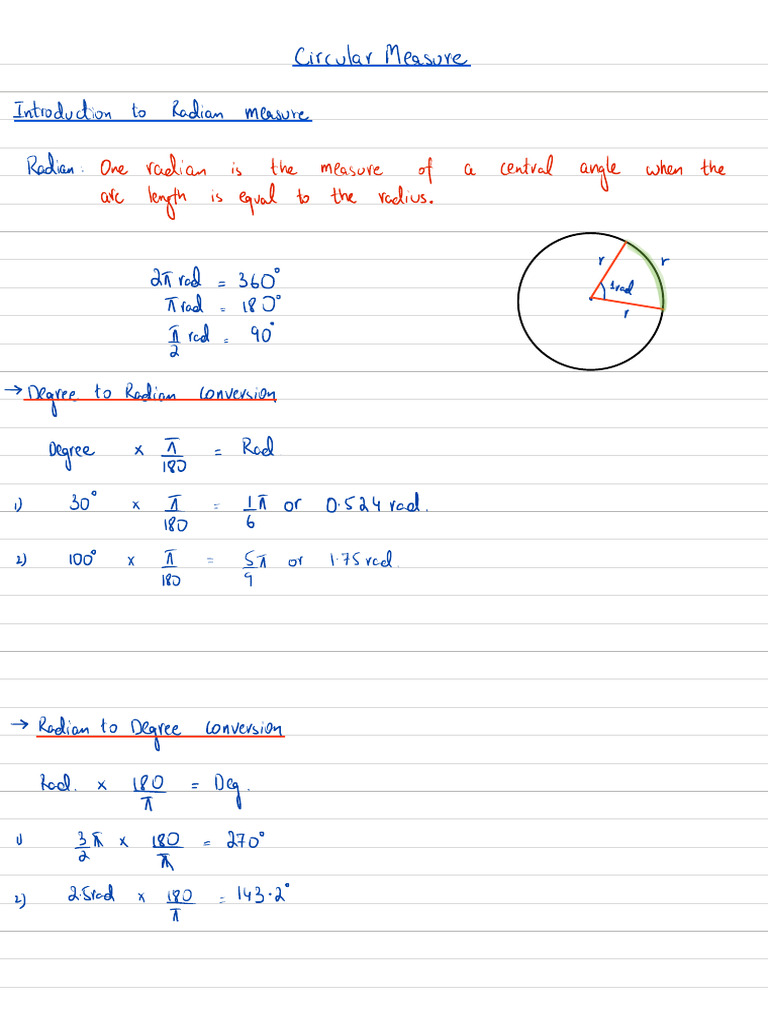 Circular Measure
Introduction to Radian measure
Radian: One radian is the measure of a central angle when the
arc length is equal to the radius.
2π rad = 360°
π rad = 180°
π/2 rad = 90°
r
r
1rad
r
→ Degree to Radian conversion
Degree × π/180 = Rad
1) 30° × π/180 = 1/6 π or 0.524 rad.
2) 100° × π/180 = 5/9 π or 1.75 rad.
→ Radian to Degree conversion
Rad. × 180/π = Deg.
1) 3/2 π × 180/π = 270°
2) 2.5rad × 180/π = 143.2°